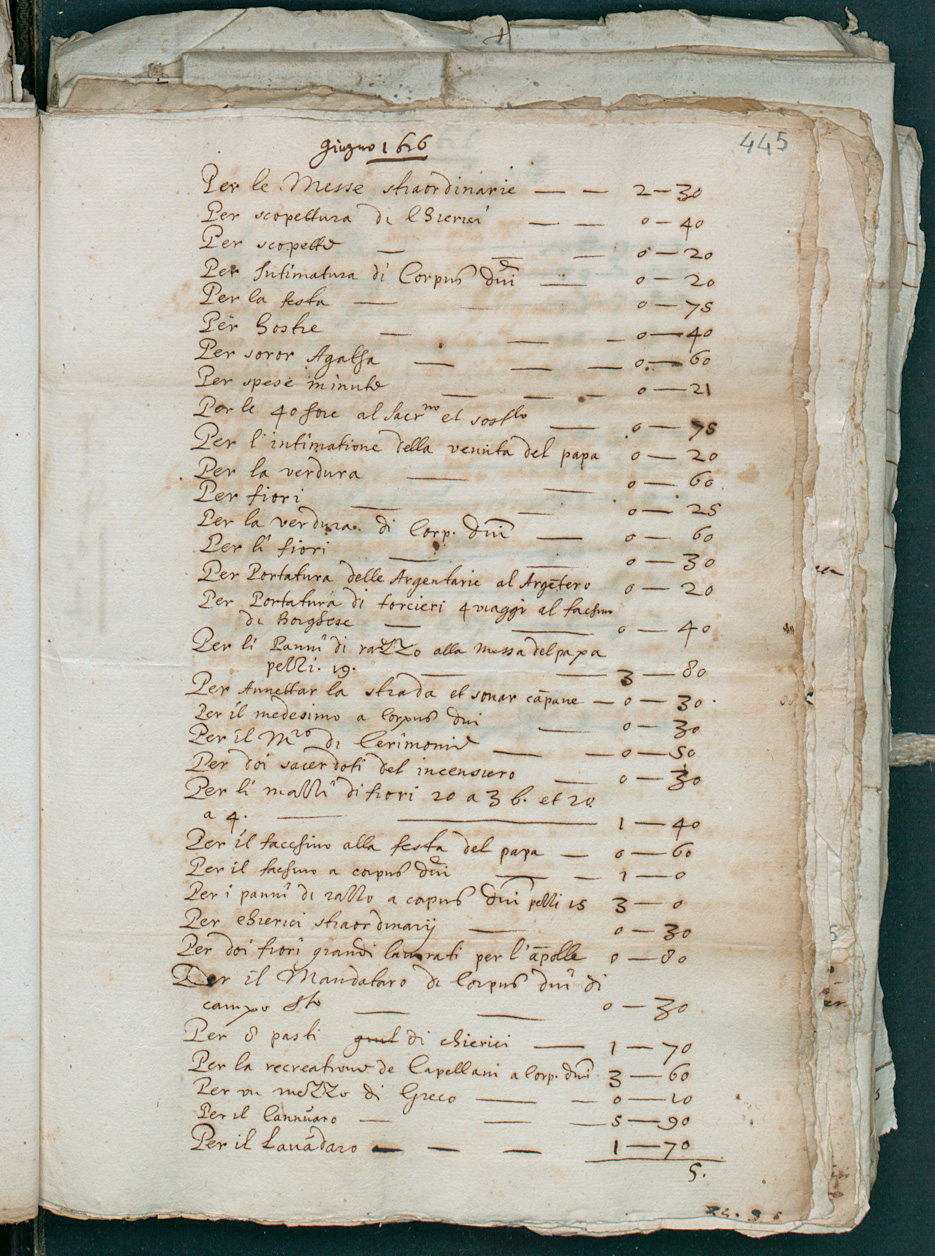 445
Giugno 1616
Per le Messe straordinarie — — 2 — 30
Per scopettura di Chierici — — 0 — 40
Per scopette — — — 0 — 20
Per Intimatura di Corpus Dni — 0 — 20
Per la festa — — 0 — 75
Per hostie — — — 0 — 40
Per soror Agatha — — — 0 — 60
Per spese minute — — — 0 — 21
Per le 40 hore al sacr.no et — 0 — 75
Per l'intimatione della venuta del papa 0 — 20
Per la verdura — — 0 — 60
Per fiori — — 0 — 25
Per la verdura di Corp. Dni — 0 — 60
Per li fiori — 0 — 30
Per Portatura delle Argentarie al Argētero 0 — 20
Per Portatura di torcieri 4 viaggi al fachin
di Borghese — — 0 — 40
Per li Panni di razzo alla messa del papa
pezzi. 19. — — 3 — 80
Per Annettar la strada et sonar cāpane — 0 — 30
Per il medesimo a Corpus Dni — 0 — 30
Per il M.ro di Cerimonie — — 0 — 50
Per doi sacerdoti del incensiero — 0 — 30
Per li mazzi di fiori 20 a 3 b. et 20
a 4. — — 1 — 40
Per il facchino alla festa del papa — 0 — 60
Per il fachino a corpus Dni — 1 — 0
Per i panni di razzo a copus Dni pezzi 15 3 — 0
Per chierici straordinarij — 0 — 30
Per doi fiori grandi laurati per l'āpolle 0 — 80
Per il Mandataro di Corpus Dni di
campo sto — — 0 — 30
Per 8 pasti di chierici — 1 — 70
Per la recreatione de Capellani a Corp. Dni 3 — 60
Per un mezzo di Greco — — 0 — 10
Per il — — 5 — 90
Per il Lavādaro — — — 1 — 70
5.